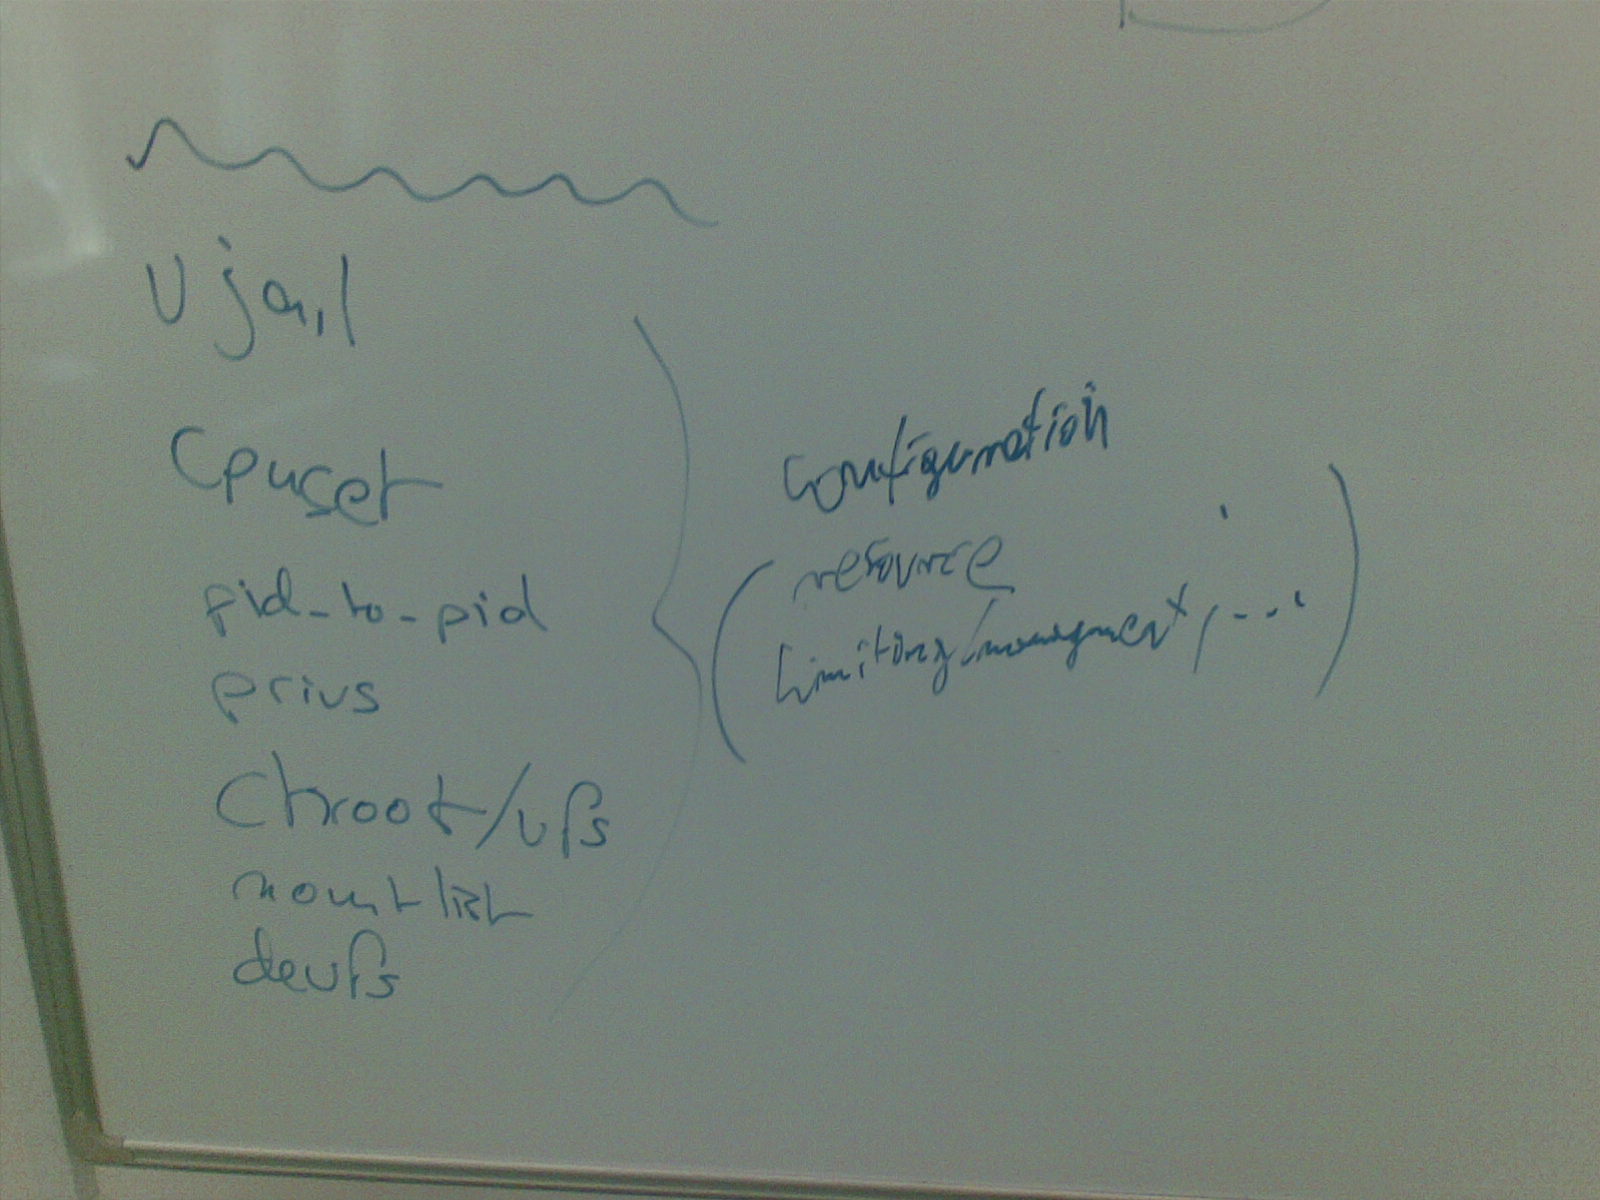 vjail
cpuset
pid-to-pid
privs
chroot/vfs
mountlist
devfs
configuration
(resource
limiting/managment, ...)